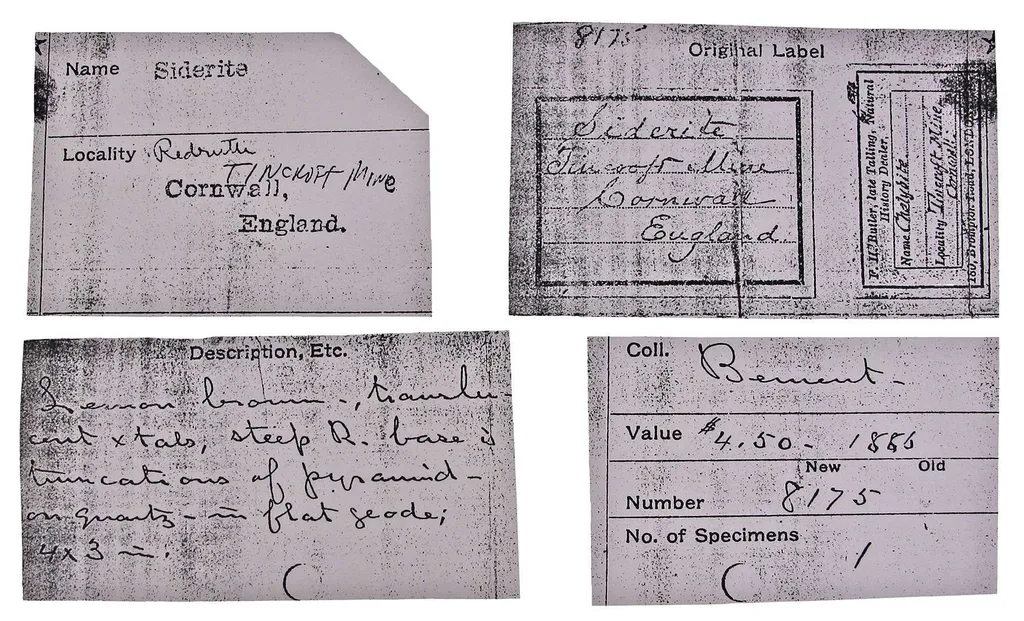 Name Siderite
Locality Redruth
TINCROFT MINE
Cornwall,
England.
8175
Original Label
Siderite
Tincroft Mine
Cornwall
England
F. H. Butler, late Talling, Natural
History Dealer.
Name Chalybite
Locality Tincroft Mine
Cornwall
180, Brompton Road, LONDON
Description, Etc.
Lemon brown-, translu-
cent xtals, steep R. base &
truncations of pyramid-
on quartz - in flat geode;
4x3 in.
Coll. Bement-
Value $4.50- 1886
New Old
Number 8175
No. of Specimens
1